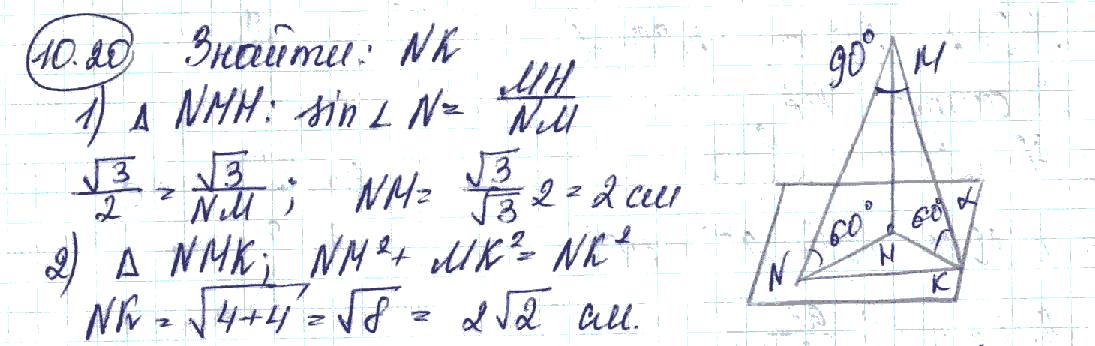 10.20 Знайти: NK
1) Δ NMH: sin ∠ N = MH/NM
√3/2 = √3/NM; NM = √3/√3 2 = 2 см
2) Δ NMK; NM² + MK² = NK²
NK = √4+4 = √8 = 2√2 см.
90° M
60° 60° α
N H K